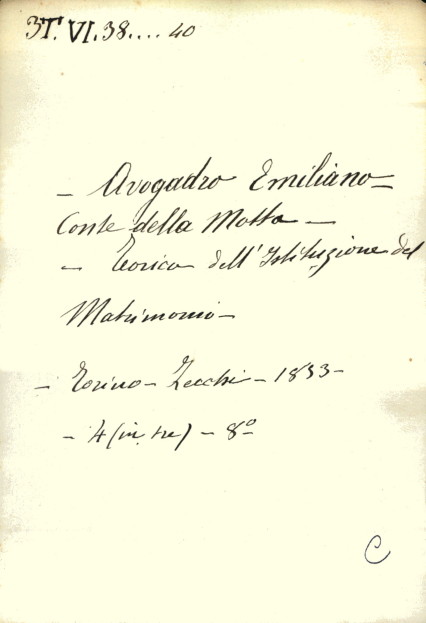 3T.VI.38....40
- Avogadro Emiliano -
Conte della Motta -
- Teorica dell'Istituzione del
Matrimonio -
- Torino - Zecchi - 1833 -
- 4 (in tre) - 8º
C